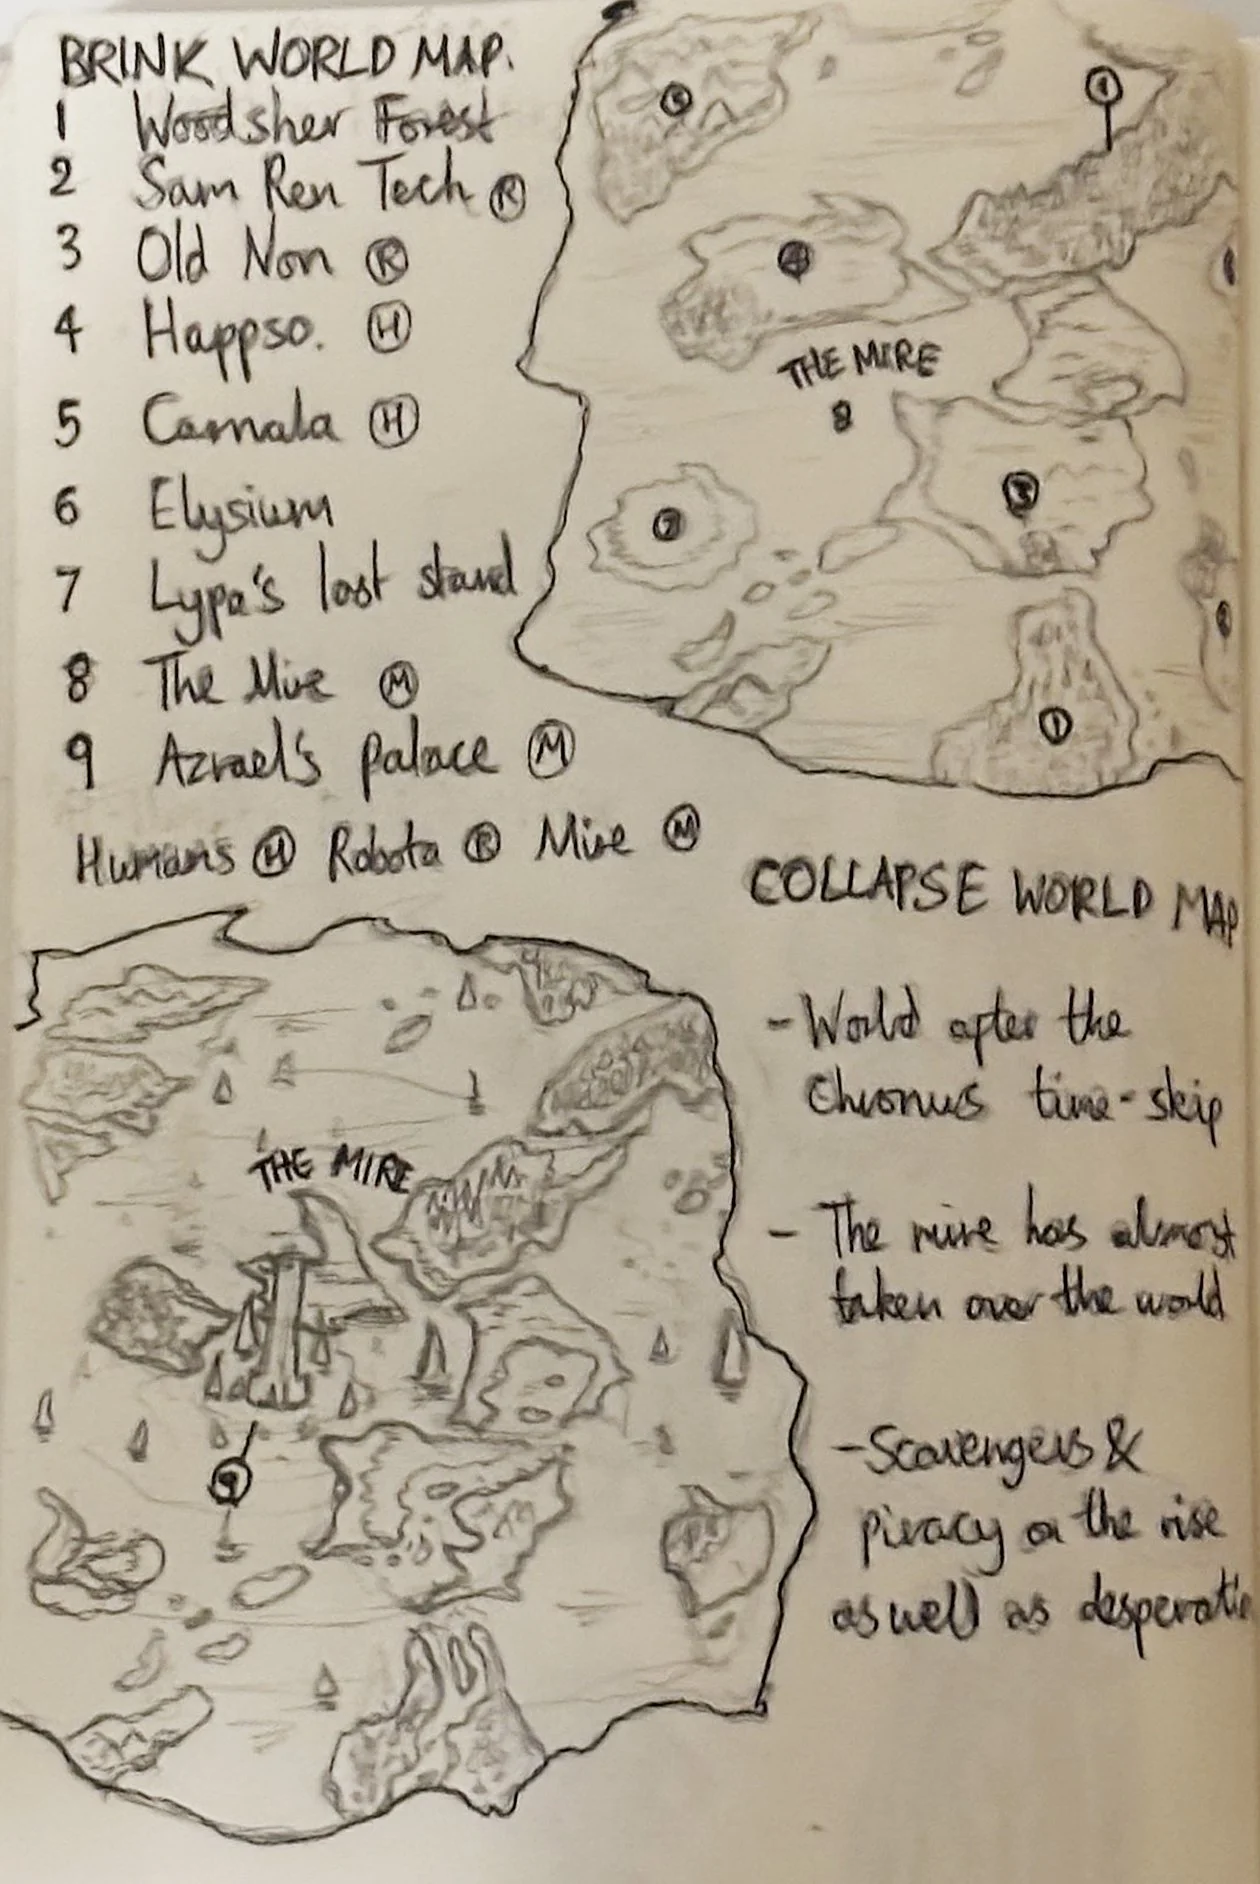 BRINK WORLD MAP.
1 Woodsher Forest
2 Sam Ren Tech Ⓡ
3 Old Non Ⓡ
4 Happso. Ⓗ
5 Camala Ⓗ
6 Elysium
7 Lypa's last stand
8 The Mire Ⓜ
9 Azrael's palace Ⓜ
Humans Ⓗ Robota Ⓡ Mire Ⓜ
5
4
THE MIRE
8
3
7
1
COLLAPSE WORLD MAP
- World after the
Chronus time-skip
- The mire has almost
taken over the world
- Scavengers &
piracy on the rise
as well as desperati
THE MIRE
9